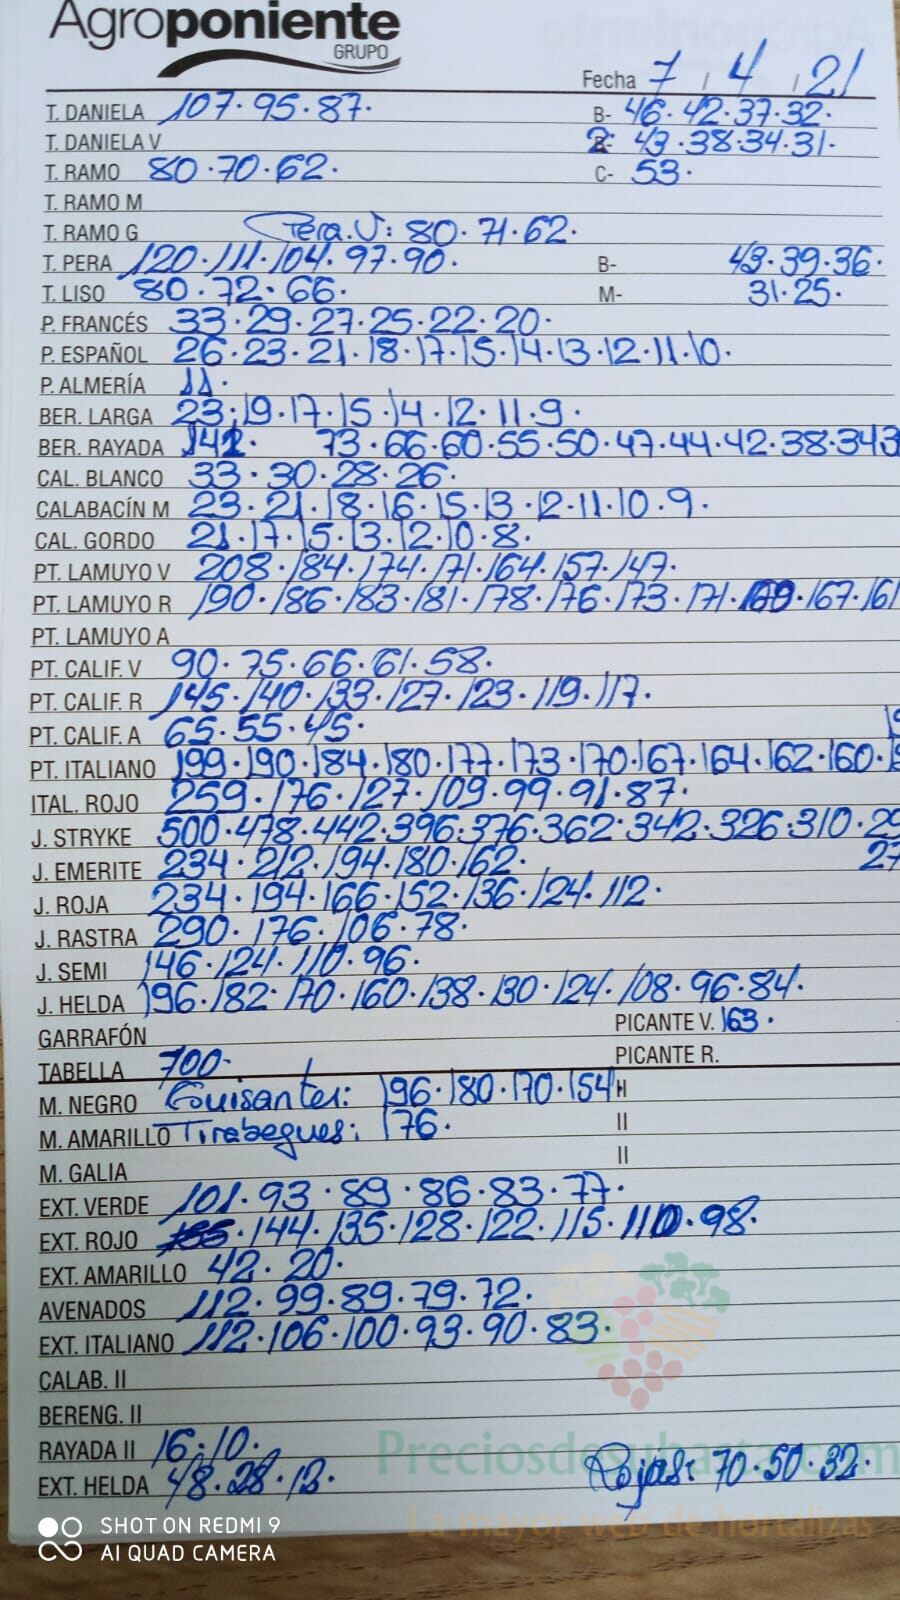 Agroponiente
GRUPO
Fecha 7 / 4 / 21
T. DANIELA 107. 95. 87. B- 46. 42. 37. 32.
T. DANIELA V 2: 43. 38. 34. 31.
T. RAMO 80. 70. 62. C- 53.
T. RAMO M
T. RAMO G Pera. V: 80. 71. 62.
T. PERA 120. 111. 104. 97. 90. B- 43. 39. 36.
T. LISO 80. 72. 66. M- 31. 25.
P. FRANCÉS 33. 29. 27. 25. 22. 20.
P. ESPAÑOL 26. 23. 21. 18. 17. 15. 14. 13. 12. 11. 10.
P. ALMERÍA 11.
BER. LARGA 23. 19. 17. 15. 14. 12. 11. 9.
BER. RAYADA 142. 73. 66. 60. 55. 50. 47. 44. 42. 38. 34
CAL. BLANCO 33. 30. 28. 26.
CALABACÍN M 23. 21. 18. 16. 15. 13. 12. 11. 10. 9.
CAL. GORDO 21. 17. 15. 13. 12. 10. 8.
PT. LAMUYO V 208. 184. 174. 171. 164. 157. 147.
PT. LAMUYO R 190. 186. 183. 181. 178. 176. 173. 171. 169. 167. 161
PT. LAMUYO A
PT. CALIF. V 90. 75. 66. 61. 58.
PT. CALIF. R 145. 140. 133. 127. 123. 119. 117.
PT. CALIF. A 65. 55. 45.
PT. ITALIANO 199. 190. 184. 180. 177. 173. 170. 167. 164. 162. 160.
ITAL. ROJO 259. 176. 127. 109. 99. 91. 87.
J. STRYKE 500. 478. 442. 396. 376. 362. 342. 326. 310.
J. EMERITE 234. 212. 194. 180. 162. 27
J. ROJA 234. 194. 166. 152. 136. 124. 112.
J. RASTRA 290. 176. 106. 78.
J. SEMI 146. 124. 110. 96.
J. HELDA 196. 182. 170. 160. 138. 130. 124. 108. 96. 84.
GARRAFÓN PICANTE V. 163.
TABELLA 700. PICANTE R.
M. NEGRO Guisantes: 196. 180. 170. 154 II
M. AMARILLO Tirabegues: 176. II
M. GALIA II
EXT. VERDE 101. 93. 89. 86. 83. 77.
EXT. ROJO 144. 135. 128. 122. 115. 110. 98.
EXT. AMARILLO 42. 20.
AVENADOS 112. 99. 89. 79. 72.
EXT. ITALIANO 112. 106. 100. 93. 90. 83.
CALAB. II
BERENG. II
RAYADA II 16. 10.
Preciosdesubasta.com
EXT. HELDA 48. 28. 12. Rojas: 70. 50. 32.
La mayor web de hortalizas
SHOT ON REDMI 9
AI QUAD CAMERA